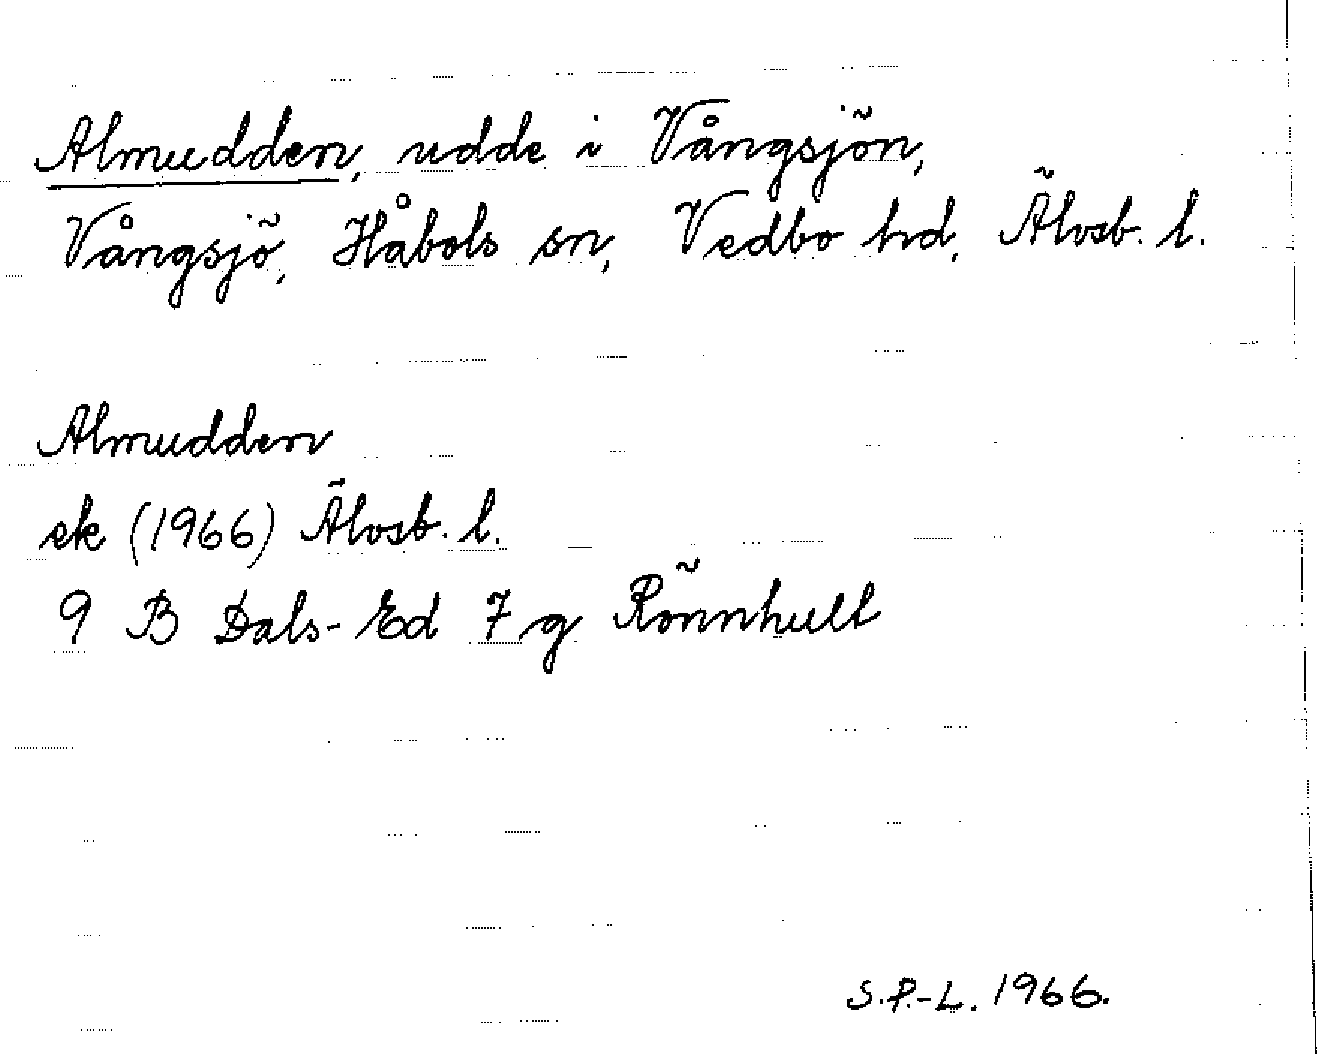 Almudden, udde i Vångsjön,
Vångsjö, Håbols sn, Vedbo hd, Älvsb. l.
Almudden
ek (1966) Älvsb. l.
9 B Dals-Ed 7 g Rönnhult
S.P.-L. 1966.